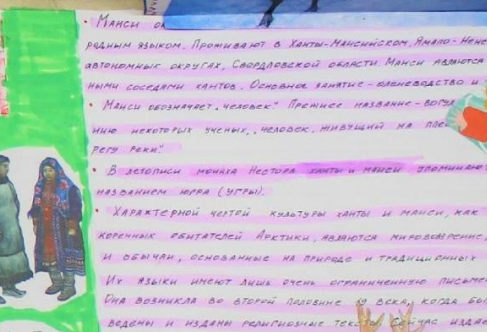 • Манси
родным языком. Проживают в Ханты-Мансийском, Ямало-Нене
автономных округах, Свердловской области. Манси являются
ными соседами хантов. Основное занятие-оленеводство и
• Манси обозначает „человек." Прежнее название-вогул
нию некоторых ученых, „человек, живущий на
регу реки."
• В летописи монаха Нестора ханты и манси упоминаю
названием югра (угры).
• Характерной чертой культуры ханты и манси, как
коренных обитателей Арктики, являются мировоззрение,
и обычаи, основанные на природе и традиционных
Их языки имеют лишь очень ограниченную письмен
Она возникла во второй половине 19 века, когда был
ведены и изданы религиозные тексты. Сейчас издае